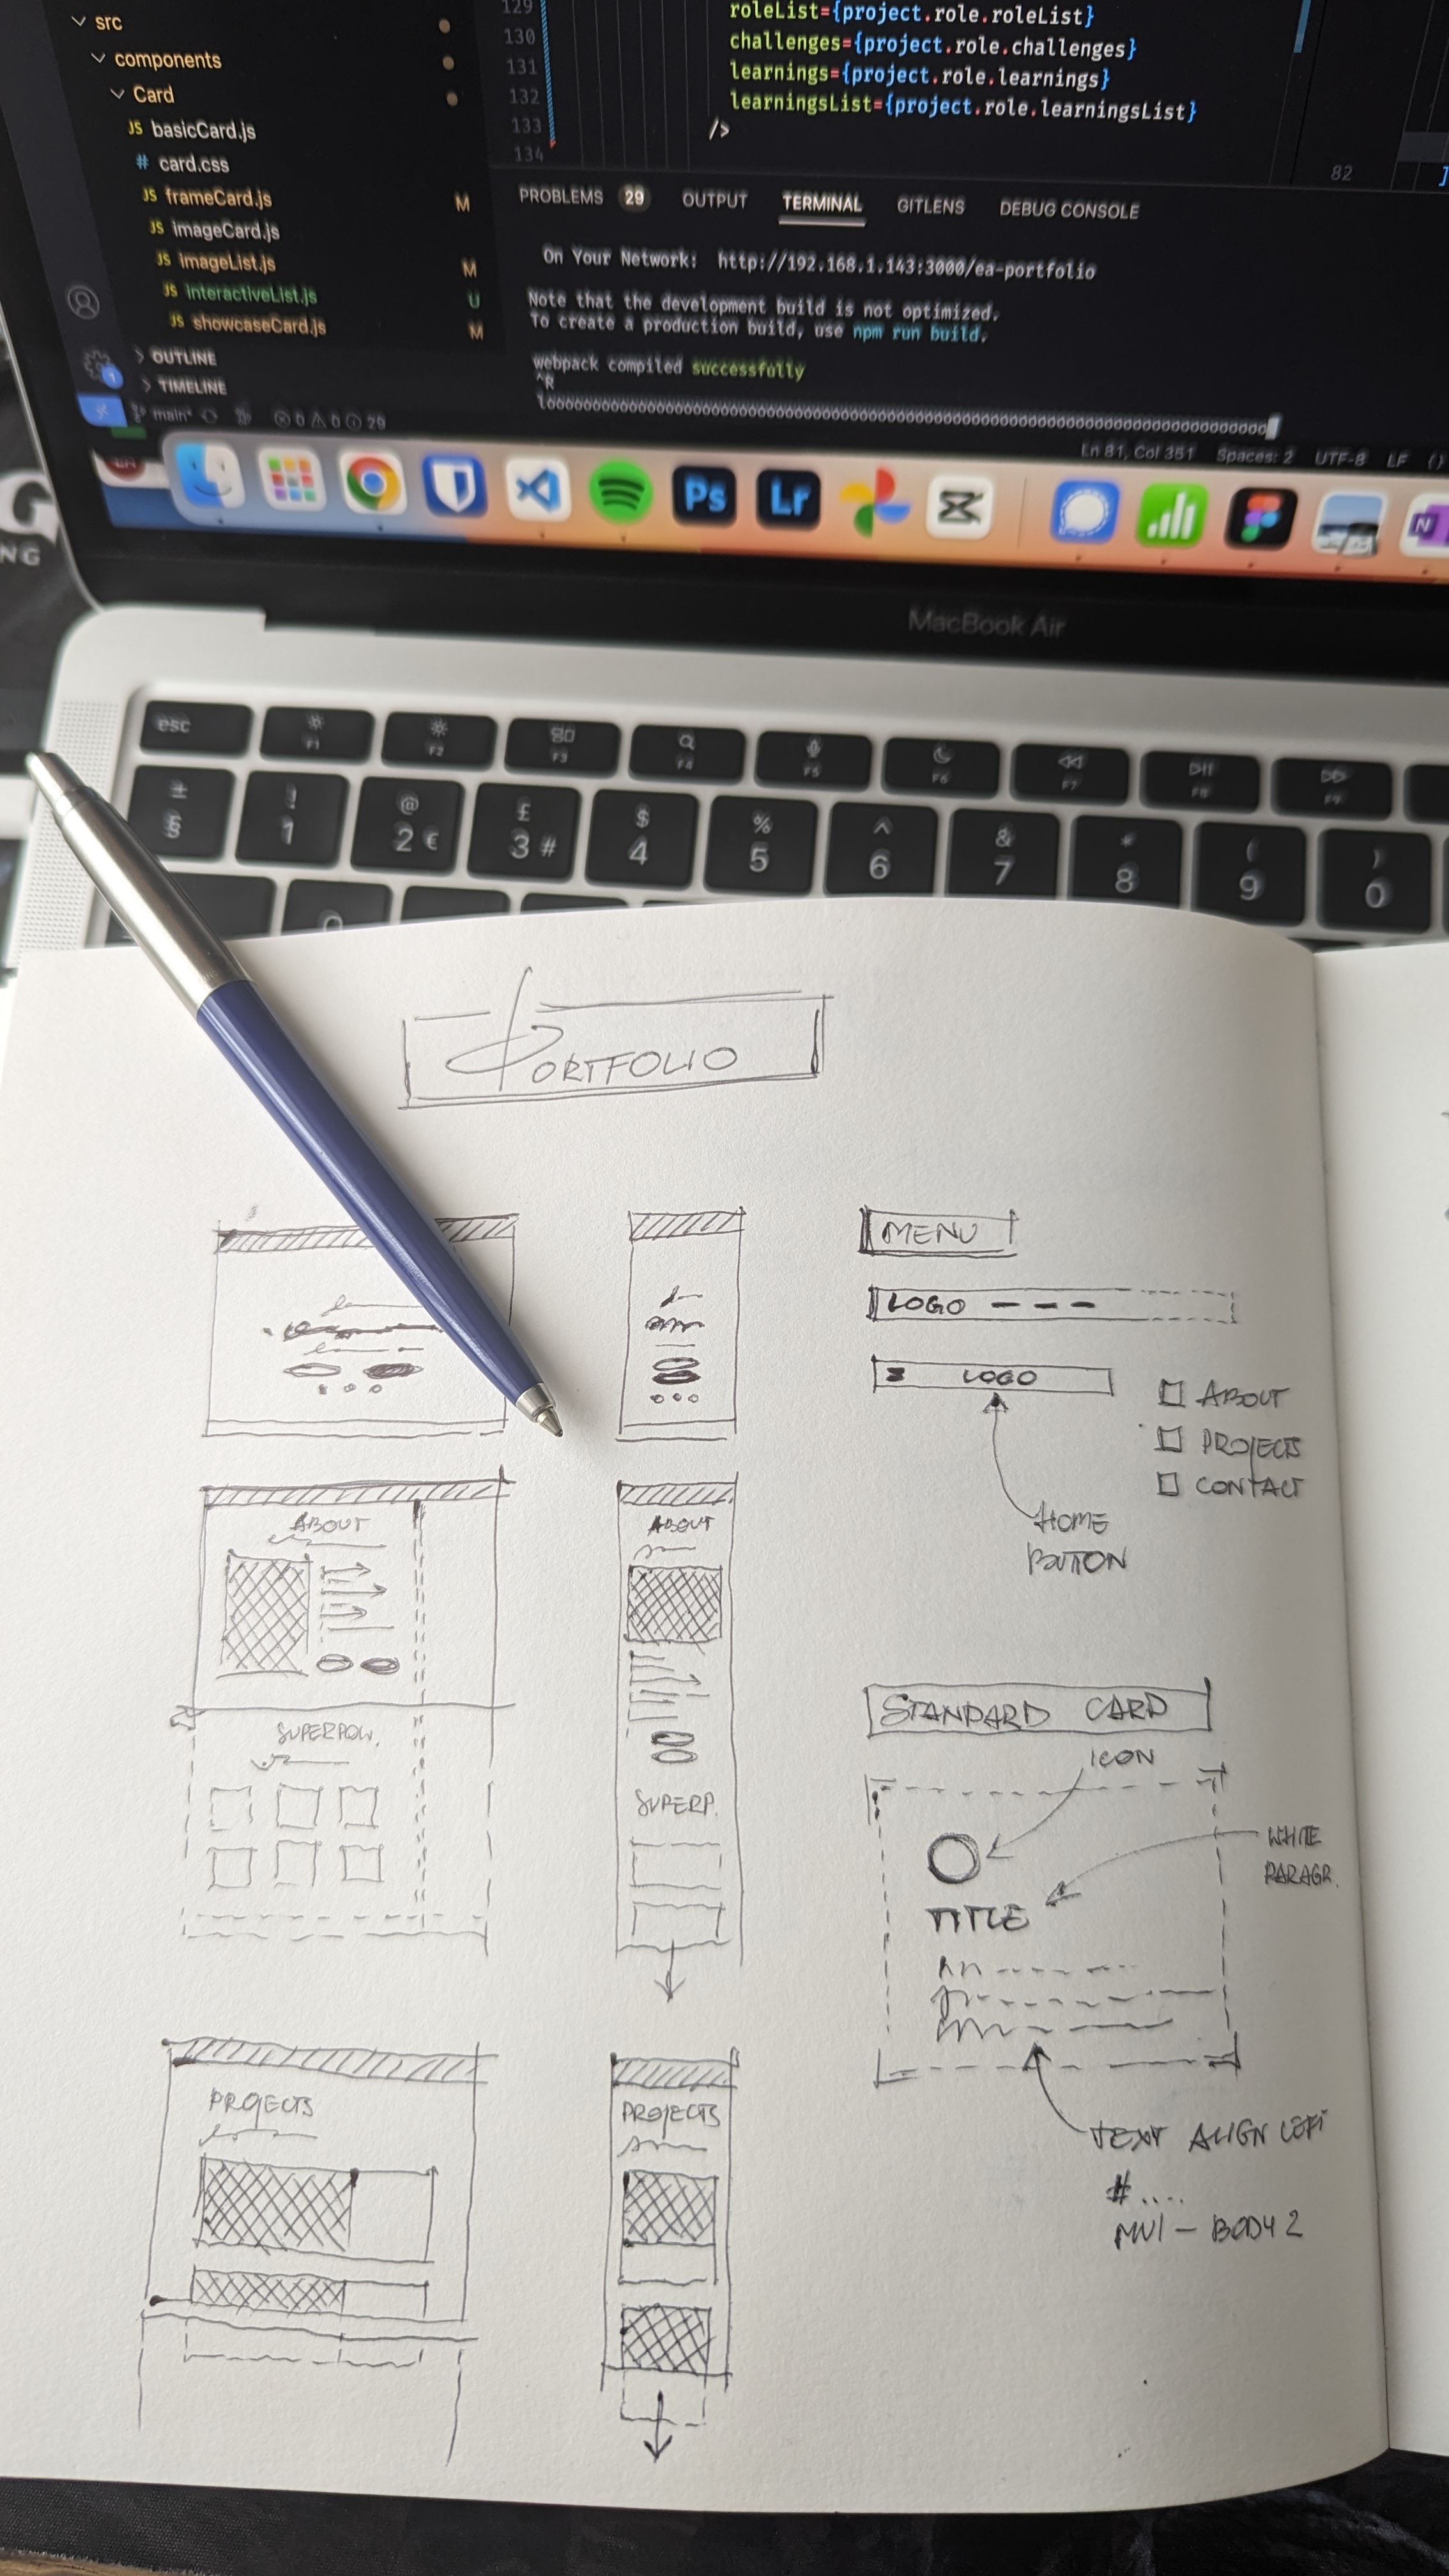 src
components
Card
JS basicCard.js
# card.css
JS frameCard.js M
JS imageCard.js
JS imageList.js M
JS interactiveList.js U
JS showcaseCard.js M
OUTLINE
TIMELINE
main* 0 0 29
129 roleList={project.role.roleList}
130 challenges={project.role.challenges}
131 learnings={project.role.learnings}
132 learningsList={project.role.learningsList}
133 />
134
82 ]
PROBLEMS 29 OUTPUT TERMINAL GITLENS DEBUG CONSOLE
On Your Network: http://192.168.1.143:3000/ea-portfolio
Note that the development build is not optimized.
To create a production build, use npm run build.
webpack compiled successfully
^R
Ln 81, Col 351 Spaces: 2 UTF-8 LF {}
Ps Lr N
NG
MacBook Air
esc F1 F2 F3 F4 F5 F6 F7 F8 F9
± ! @ £ $ % ^ & * ( )
§ 1 2 € 3 # 4 5 6 7 8 9 0
PORTFOLIO
MENU
LOGO
LOGO
ABOUT
PROJECTS
CONTACT
HOME
BUTTON
ABOUT
ABOUT
SUPERPOW.
SUPERP.
STANDARD CARD
ICON
WHITE
PARAGR.
TITLE
PROJECTS
PROJECTS
TEXT ALIGN LEFT
# ....
MUI - BODY 2